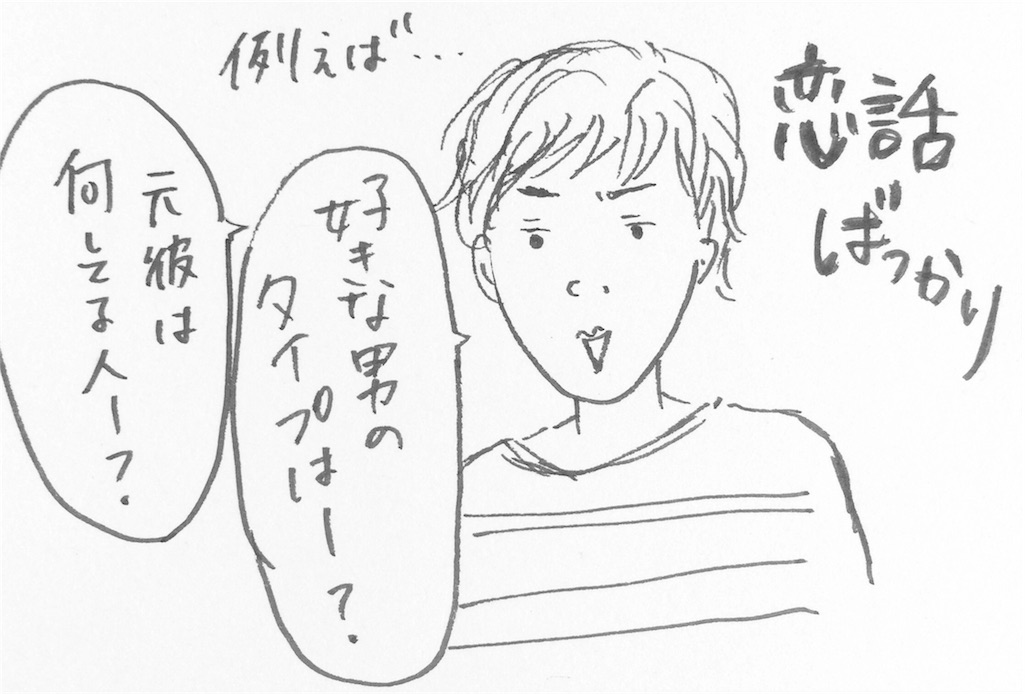 恋話
ばっかり
例えば…
好きな男の
タイプはー?
元彼は
何してる人ー?